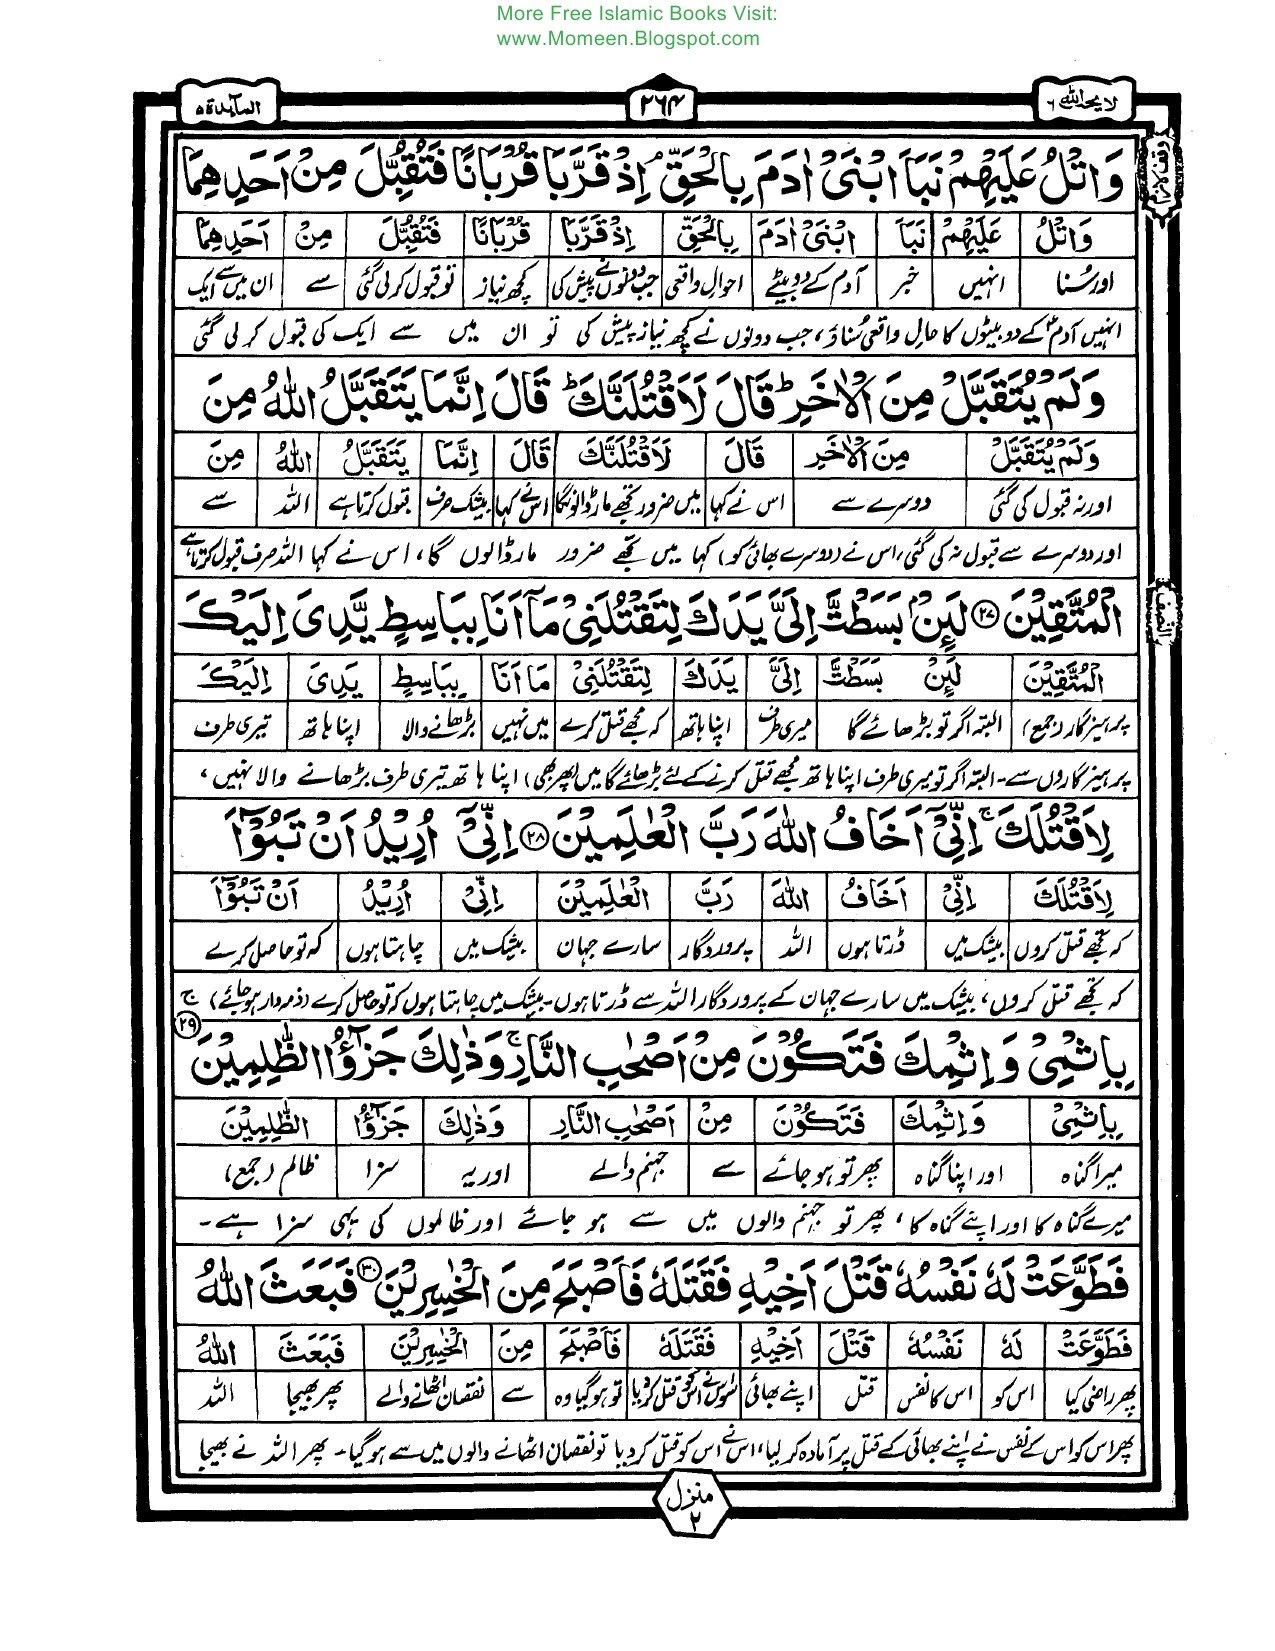 More Free Islamic Books Visit:
www.Momeen.Blogspot.com
لا یحب اللہ ۶
۲۶۴
المآىدة ۵
وَاتْلُ عَلَيْهِمْ نَبَاَ ابْنَيْ اٰدَمَ بِالْحَقِّ ۘ اِذْ قَرَّبَا قُرْبَانًا فَتُقُبِّلَ مِنْ اَحَدِهِمَا
وَاتْلُ عَلَيْهِمْ نَبَاَ ابْنَيْ اٰدَمَ بِالْحَقِّ اِذْ قَرَّبَا قُرْبَانًا فَتُقُبِّلَ مِنْ اَحَدِهِمَا
اور سُنا انہیں خبر آدم کے دو بیٹے احوالِ واقعی جب دونوں نے پیش کی کچھ نیاز تو قبول کر لی گئی سے ان میں سے ایک
انہیں آدمؑ کے دو بیٹوں کا حالِ واقعی سُناؤ، جب دونوں نے کچھ نیاز پیش کی تو ان میں سے ایک کی قبول کر لی گئی
وَلَمْ يُتَقَبَّلْ مِنَ الْاٰخَرِ ؕ قَالَ لَاَقْتُلَنَّكَ ؕ قَالَ اِنَّمَا يَتَقَبَّلُ اللّٰهُ مِنَ
وَلَمْ يُتَقَبَّلْ مِنَ الْاٰخَرِ قَالَ لَاَقْتُلَنَّكَ قَالَ اِنَّمَا يَتَقَبَّلُ اللّٰهُ مِنَ
اور نہ قبول کی گئی دوسرے سے اس نے کہا میں ضرور تجھے مار ڈالونگا اس نے کہا بیشک صرف قبول کرتا ہے اللہ سے
اور دوسرے سے قبول نہ کی گئی، اس نے (دوسرے بھائی کو) کہا میں تجھے ضرور مار ڈالوں گا، اس نے کہا اللہ صرف قبول کرتا ہے
الْمُتَّقِيْنَ ۲۷ لَىِٕنْۢ بَسَطْتَّ اِلَيَّ يَدَكَ لِتَقْتُلَنِيْ مَاۤ اَنَا بِبَاسِطٍ يَّدِيَ اِلَيْكَ
الْمُتَّقِيْنَ لَىِٕنْ بَسَطْتَّ اِلَيَّ يَدَكَ لِتَقْتُلَنِيْ مَا اَنَا بِبَاسِطٍ يَدِيَ اِلَيْكَ
پرہیزگار (جمع) البتہ اگر تو بڑھائے گا میری طرف اپنا ہاتھ کہ مجھے قتل کرے میں نہیں بڑھانے والا اپنا ہاتھ تیری طرف
پرہیزگاروں سے۔ البتہ اگر تو میری طرف اپنا ہاتھ مجھے قتل کرنے کے لئے بڑھائے گا میں (پھر بھی) اپنا ہاتھ تیری طرف بڑھانے والا نہیں،
لِاَقْتُلَكَ ۚ اِنِّيْۤ اَخَافُ اللّٰهَ رَبَّ الْعٰلَمِيْنَ ۲۸ اِنِّيْۤ اُرِيْدُ اَنْ تَبُوْٓاَ
لِاَقْتُلَكَ اِنِّيْ اَخَافُ اللّٰهَ رَبَّ الْعٰلَمِيْنَ اِنِّيْ اُرِيْدُ اَنْ تَبُوْٓاَ
کہ تجھے قتل کروں بیشک میں ڈرتا ہوں اللہ پروردگار سارے جہان بیشک میں چاہتا ہوں کہ تو حاصل کرے
کہ تجھے قتل کروں، بیشک میں سارے جہان کے پروردگار اللہ سے ڈرتا ہوں۔ بیشک میں چاہتا ہوں کہ تو حاصل کرے (ذمہ دار ہو جائے)
بِاِثْمِيْ وَاِثْمِكَ فَتَكُوْنَ مِنْ اَصْحٰبِ النَّارِ ۚ وَذٰلِكَ جَزٰٓؤُا الظّٰلِمِيْنَ ۚ ۲۹
بِاِثْمِيْ وَاِثْمِكَ فَتَكُوْنَ مِنْ اَصْحٰبِ النَّارِ وَذٰلِكَ جَزٰٓؤُا الظّٰلِمِيْنَ
میرا گناہ اور اپنا گناہ پھر تو ہو جائے سے جہنم والے اور یہ سزا ظالم (جمع)
میرے گناہ کا اور اپنے گناہ کا، پھر تو جہنم والوں میں سے ہو جائے اور ظالموں کی یہی سزا ہے۔
فَطَوَّعَتْ لَهٗ نَفْسُهٗ قَتْلَ اَخِيْهِ فَقَتَلَهٗ فَاَصْبَحَ مِنَ الْخٰسِرِيْنَ ۳۰ فَبَعَثَ اللّٰهُ
فَطَوَّعَتْ لَهٗ نَفْسُهٗ قَتْلَ اَخِيْهِ فَقَتَلَهٗ فَاَصْبَحَ مِنَ الْخٰسِرِيْنَ فَبَعَثَ اللّٰهُ
پھر راضی کیا اس کو اس کا نفس قتل اپنے بھائی سو اس نے اس کو قتل کر دیا تو ہو گیا وہ سے نقصان اٹھانے والے پھر بھیجا اللہ
پھر اس کو اس کے نفس نے اپنے بھائی کے قتل پر آمادہ کر لیا، اس نے اس کو قتل کر دیا تو نقصان اٹھانے والوں میں سے ہو گیا۔ پھر اللہ نے بھیجا
وقف لازم
النصف
منزل ۲